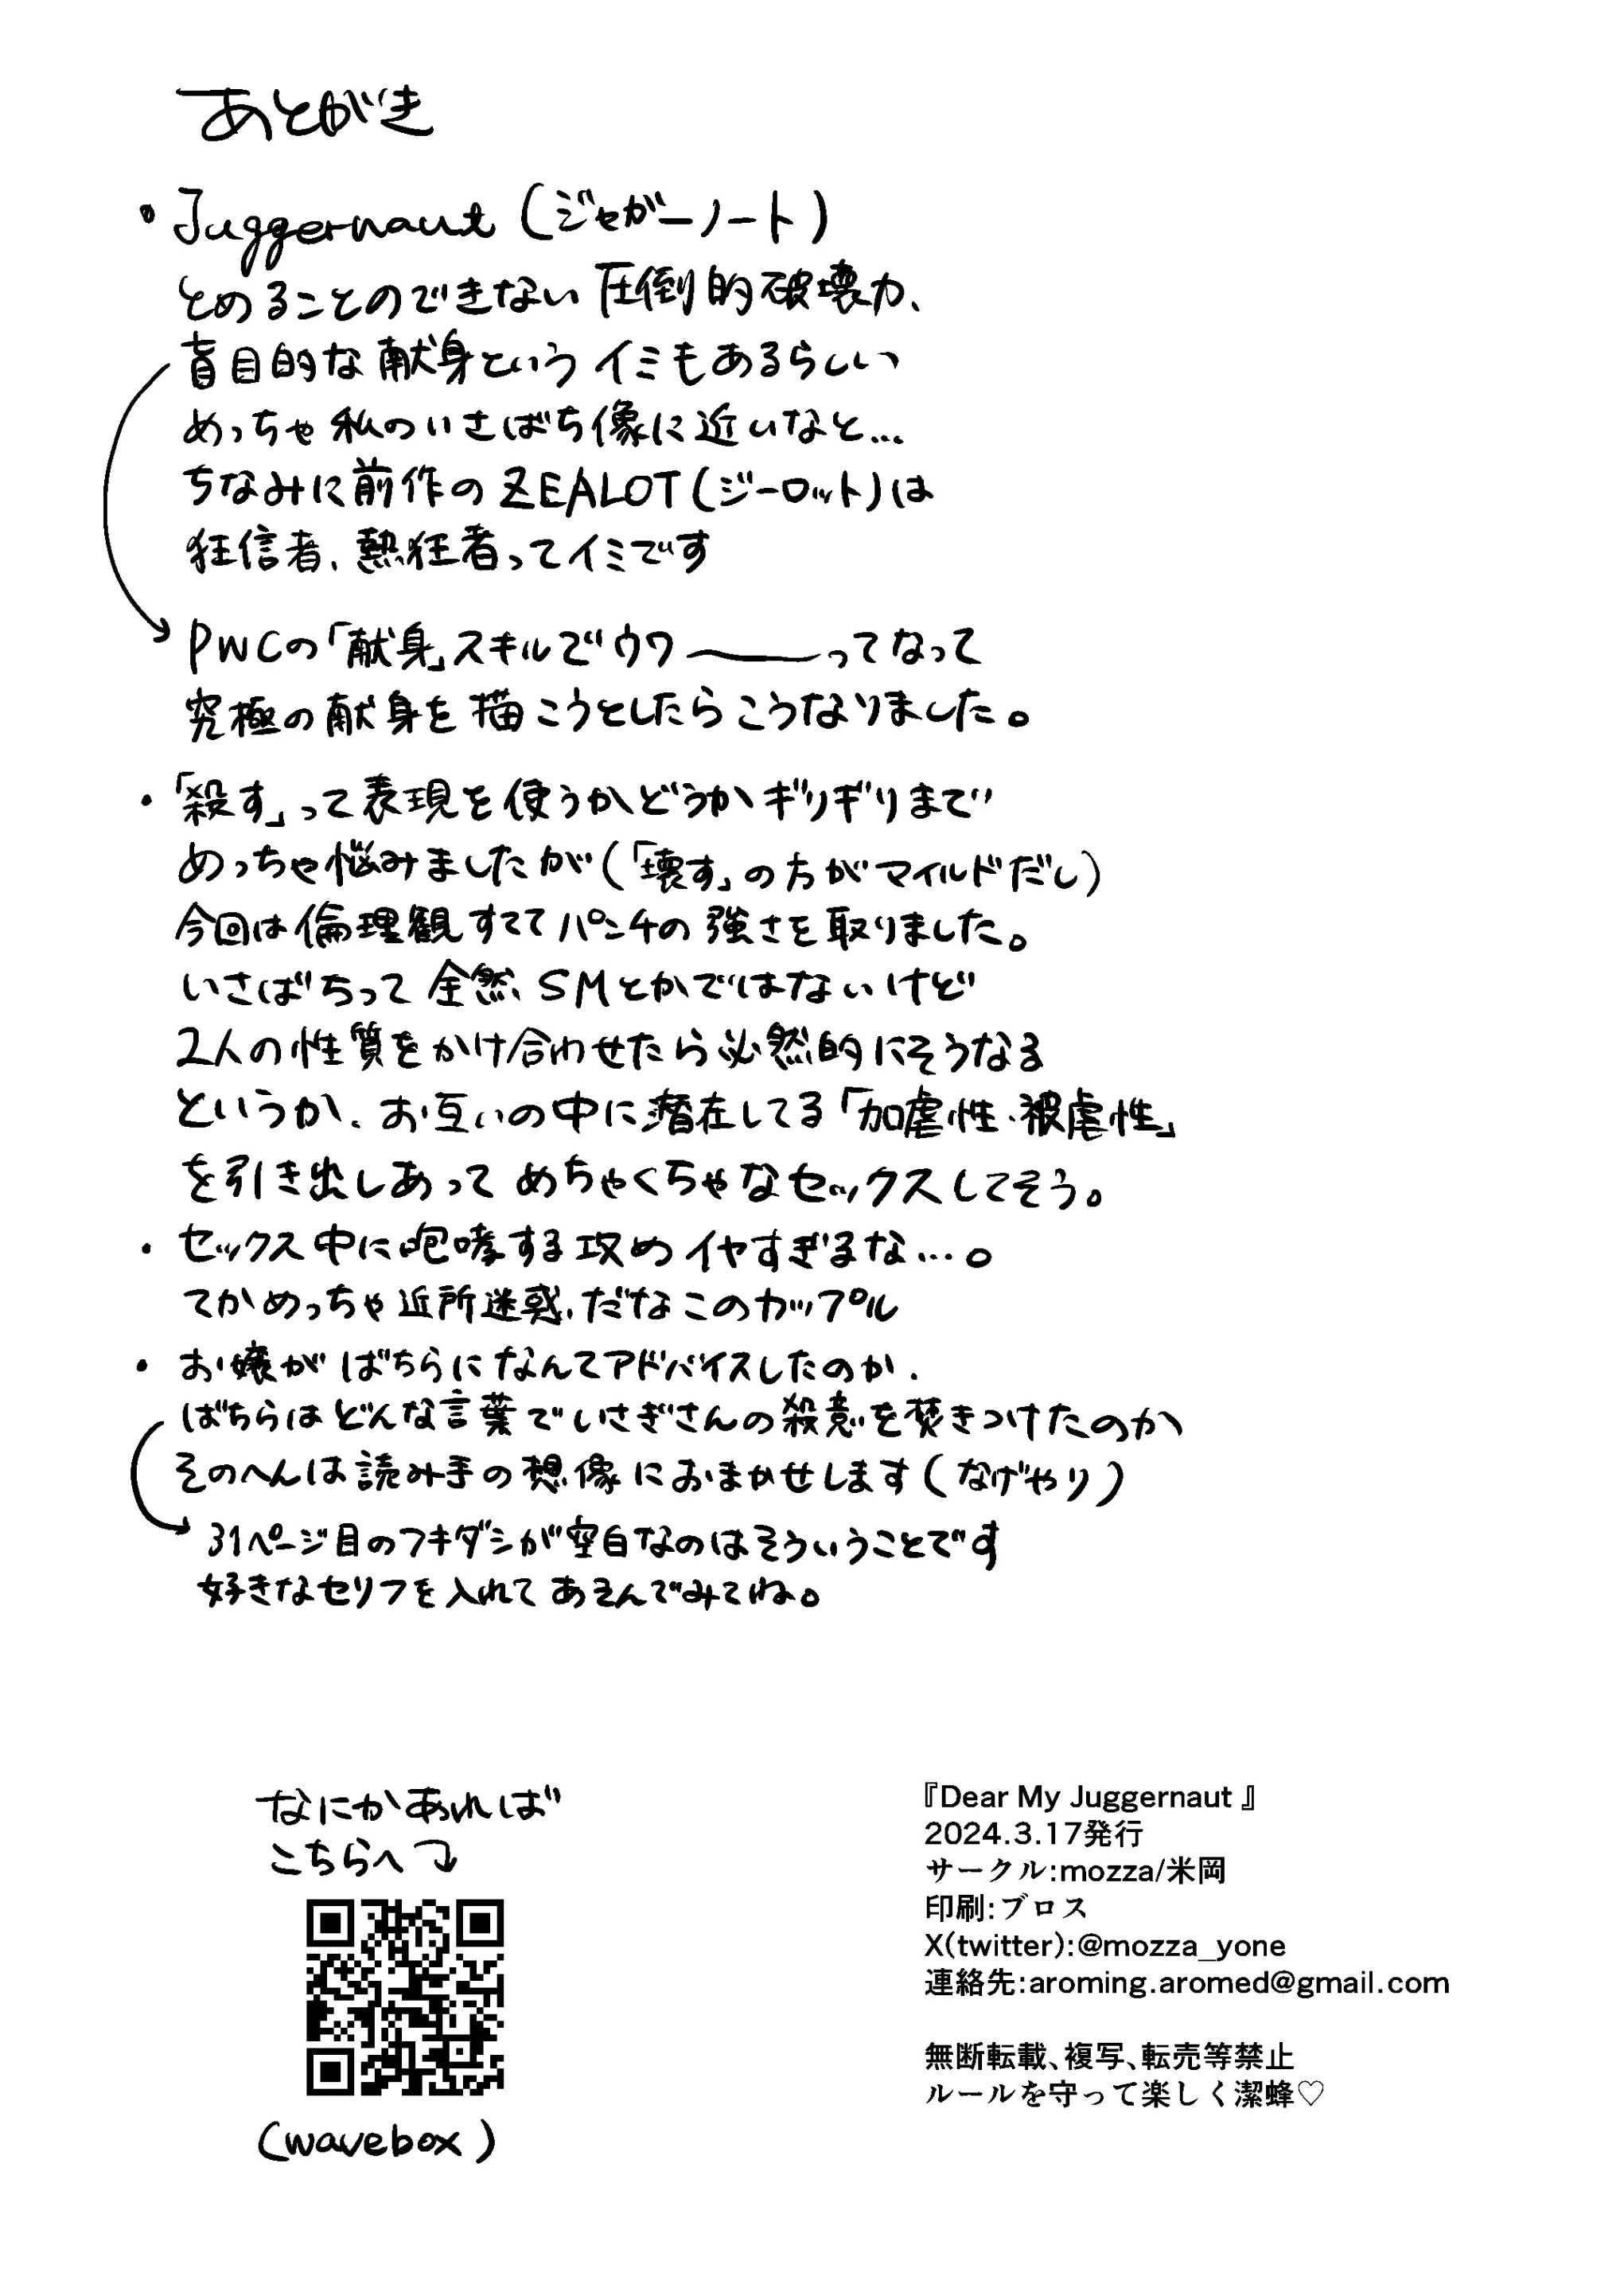 あとがき
・Juggernaut(ジャガーノート)
とめることのできない圧倒的破壊力、
盲目的な献身というイミもあるらしい
めっちゃ私のいさばち像に近いなと…
ちなみに前作のZEALOT(ジーロット)は
狂信者、熱狂者ってイミです
PWCの「献身」スキルでウワ――ってなって
究極の献身を描こうとしたらこうなりました。
・「殺す」って表現を使うかどうかギリギリまで
めっちゃ悩みましたが(「壊す」の方がマイルドだし)
今回は倫理観すててパンチの強さを取りました。
いさばちって全然、SMとかではないけど
2人の性質をかけ合わせたら必然的にそうなる
というか、お互いの中に潜在してる「加虐性・被虐性」
を引き出しあってめちゃくちゃなセックスしてそう。
・セックス中に咆哮する攻めイヤすぎるな…。
てかめっちゃ近所迷惑、だなこのカップル
・お嬢がばちらになんてアドバイスしたのか、
ばちらはどんな言葉でいさぎさんの殺意を焚きつけたのか
そのへんは読み手の想像におまかせします(なげやり)
31ページ目のフキダシが空白なのはそういうことです
好きなセリフを入れてあそんでみてね。
なにかあれば
こちらへ
(wavebox)
『Dear My Juggernaut 』
2024.3.17発行
サークル:mozza/米岡
印刷:ブロス
X(twitter):@mozza_yone
連絡先:aroming.aromed@gmail.com
無断転載、複写、転売等禁止
ルールを守って楽しく潔蜂♡